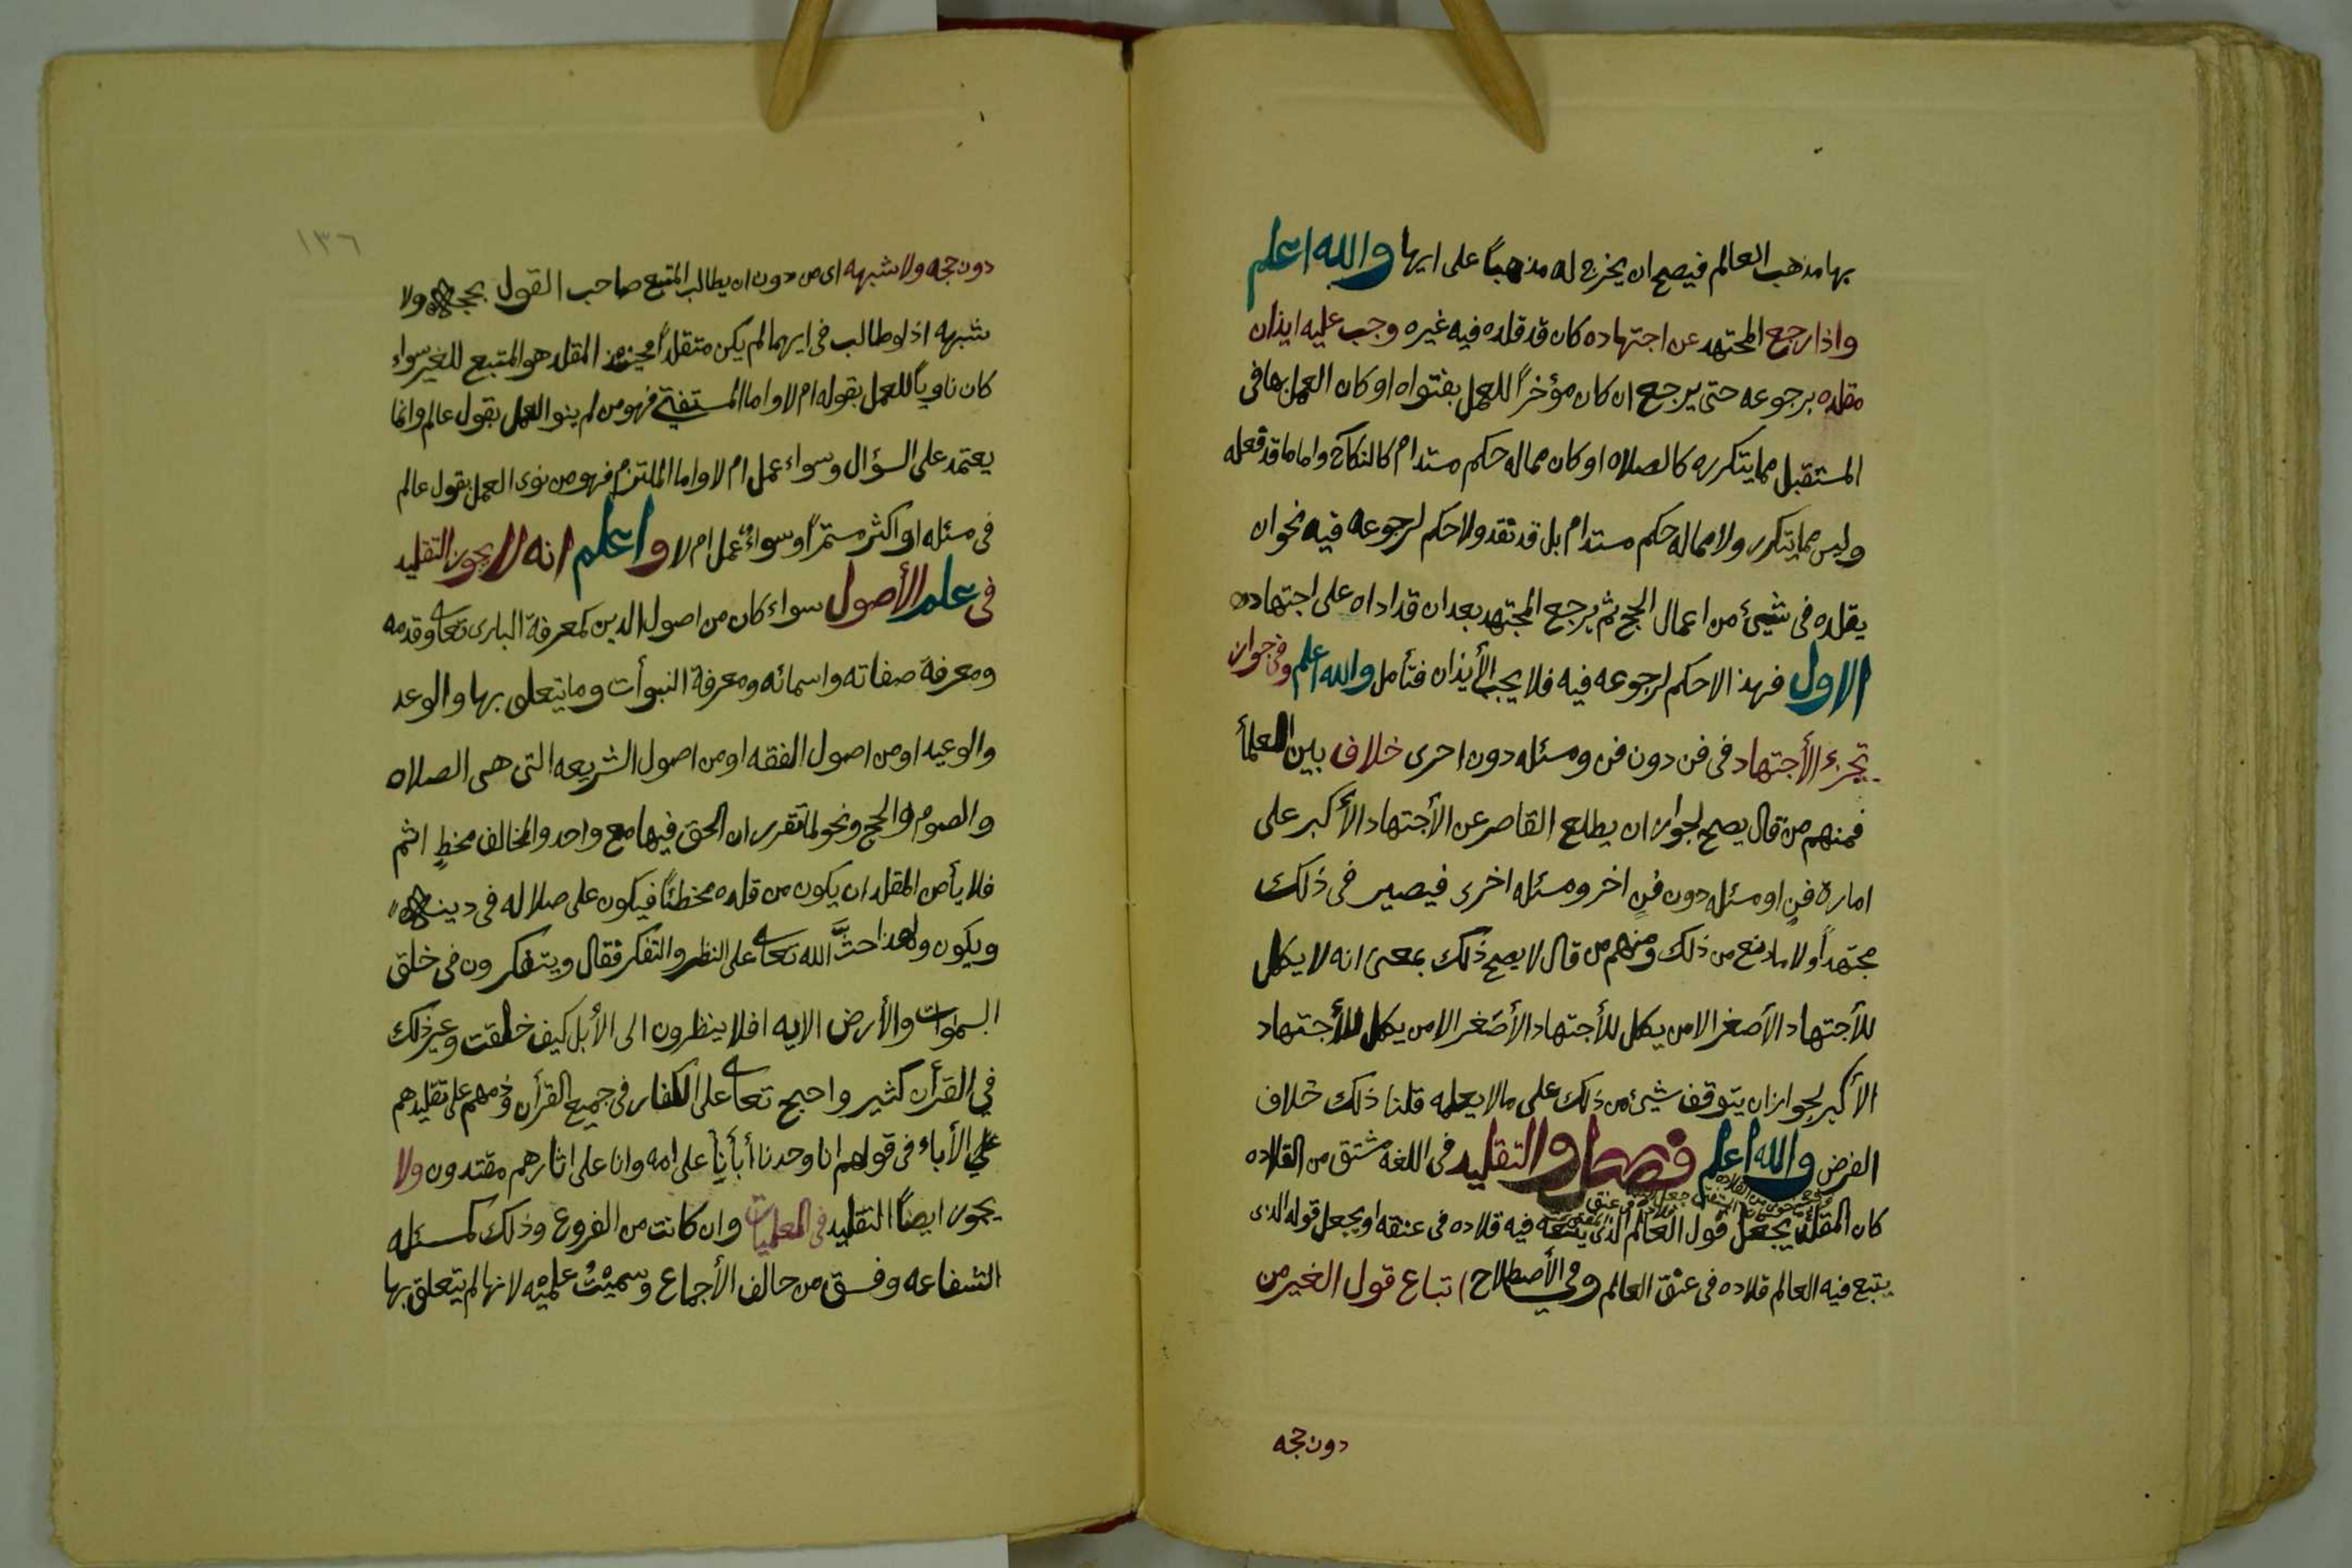 بها مذهب العالم فيصح ان يخرج له مذهباً على ايها والله اعلم
واذا رجع المجتهد عن اجتهاده كان قد قلده فيه غيره وجب عليه ايذان
مقلده برجوعه حتى يرجع ان كان مؤخراً للعمل بفتواه او كان العمل بها فى
المستقبل مما يتكرر كالصلاه او كان مما له حكم مستدام كالنكاح واما ما قد فعله
وليس مما يتكرر ولا مما له حكم مستدام بل قد نفد ولا حكم لرجوعه فيه نحو ان
يقلده فى شيئ من اعمال الحج ثم يرجع المجتهد بعد ان قد اداه على اجتهاده
الاول فهذا لا حكم لرجوعه فيه فلا يجب الأيذان فتأمل والله اعلم وفى جواز
تجزء الأجتهاد فى فن دون فن ومسئله دون اخرى خلاف بين العلمأ
فمنهم من قال يصح لجواز ان يطلع القاصر عن الأجتهاد الأكبر على
امارة فنٍ او مسئله دون فنٍ اخر ومسئله اخرى فيصير فى ذلك
مجتهداً ولا مانع من ذلك ومنهم من قال لا يصح ذلك بمعنى انه لا يكمل
للأجتهاد الأصغر الا من يكمل للأجتهاد الأصغر الا من يكمل للأجتهاد
الأكبر لجواز ان يتوقف شيئ من ذلك على مالا يعلمه قلنا ذلك خلاف
الفرض والله اعلم فصل والتقليد فى اللغه مشتق من القلاده
كان المقلد يجعل قول العالم الذى يتبعه فيه قلاده فى عنقه او يجعل قوله الذى
يتبع فيه العالم قلاده فى عنق العالم وفي الأصطلاح اتباع قول الغير من
دون حجه
١٣٦
دون حجه ولا شبهه اى من دون ان يطالب المتبع صاحب القول بحجه ولا
شبهه اذ لو طالب فى ايهما لم يكن متقلداً المقلد هو المتبع للغير سواء
كان ناوياً للعمل بقوله ام لا واما المستفتي فهو من لم ينو العمل بقول عالم وانما
يعتمد على السؤال وسواء عمل ام لا واما الملتزم فهو من نوى العمل بقول عالم
فى مسئله او اكثر مستمراً وسواءٌ عمل ام لا واعلم انه لا يجوز التقليد
فى علم الأصول سواء كان من اصول الدين كمعرفة البارى تعا وقدمه
ومعرفة صفاته واسمائه ومعرفة النبوأت وما يتعلق بها والوعد
والوعيد او من اصول الفقه او من اصول الشريعه التى هى الصلاه
والصوم والحج ونحو لما تقرر ان الحق فيها مع واحد والمخالف مخطٍ اثم
فلا يأمن المقلد ان يكون من قلده مخطئاً فيكون على ضلاله فى دينه
ويكون ولهذا حثَّ الله تعا على النظر والتفكر فقال ويتفكرون فى خلق
السموات والأرض الايه افلا ينظرون الى الأبل كيف خلقت وغير ذلك
في القرأن كثير واحتج تعا على الكفار فى جميع القرأن وذمهم على تقليدهم
علي الأباء فى قولهم انا وجدنا أبأنا على امه وانا على اثارهم مقتدون ولا
يجوز ايضاً التقليد فى العلميات وان كانت من الفروع وذلك كمسئله
الشفاعه وفسق من خالف الأجماع وسميت علميه لانها لم يتعلق بها